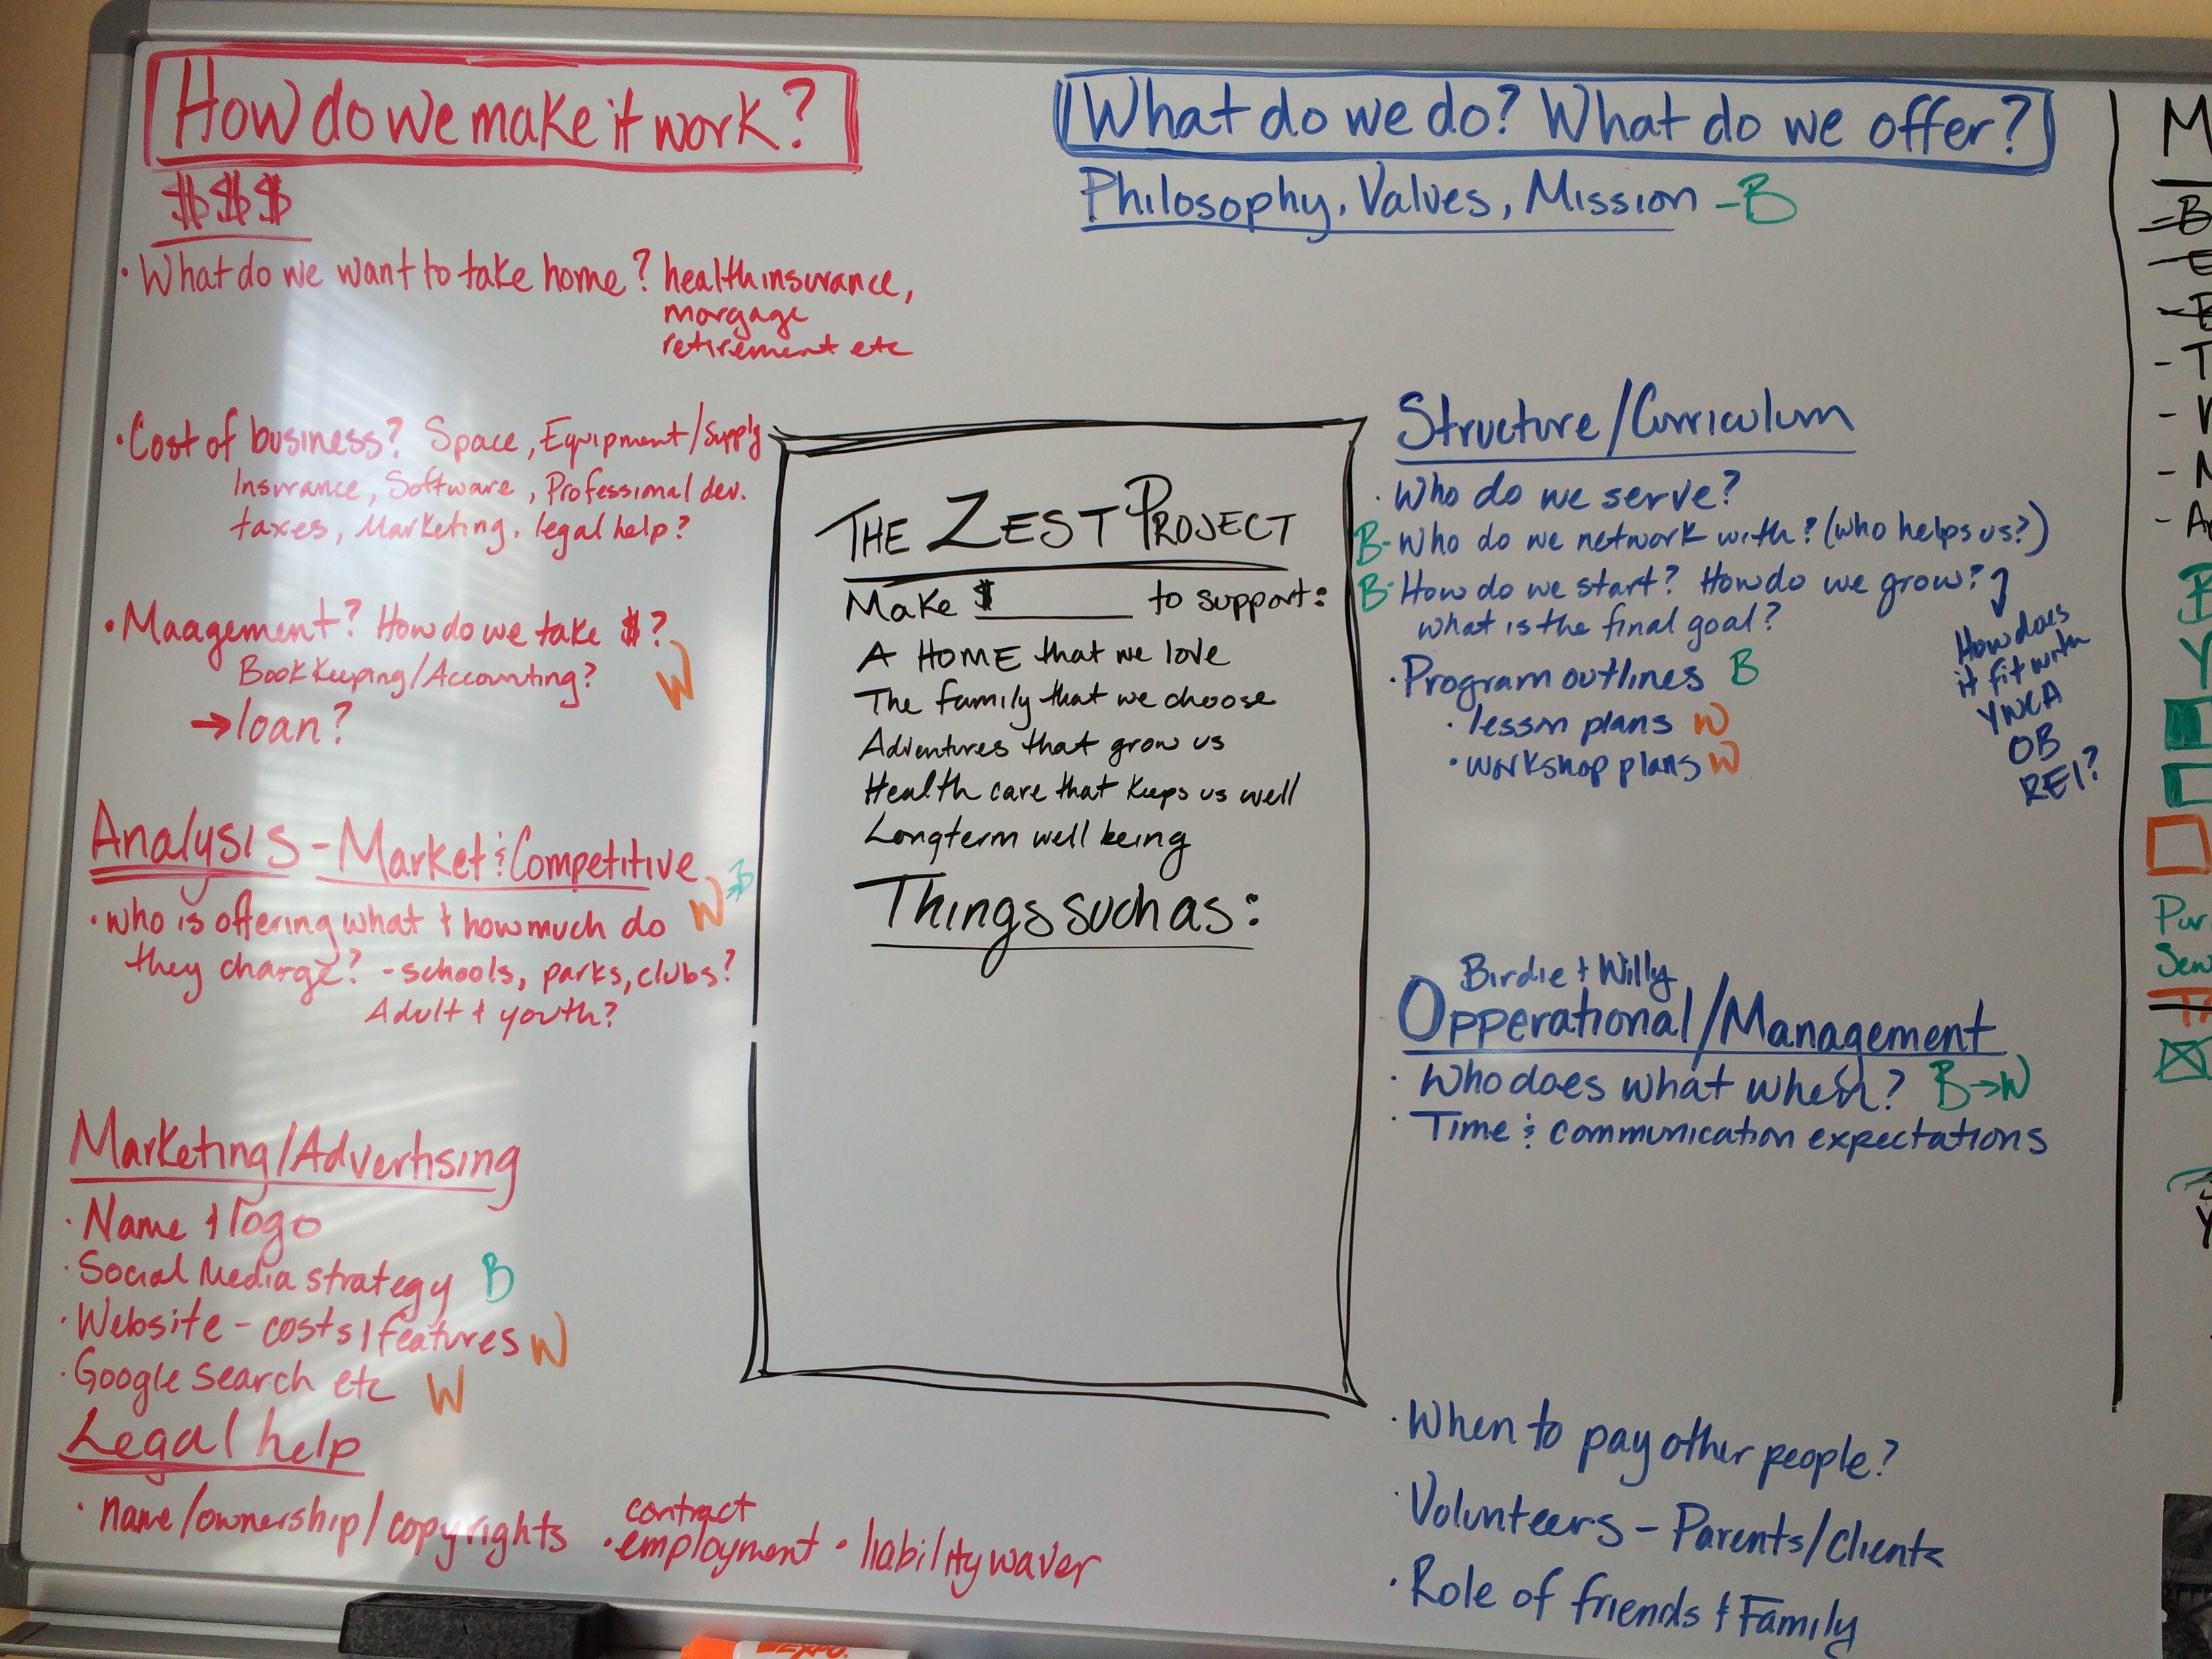 How do we make it work?
$$$
· What do we want to take home? health insurance,
morgage
retirement etc
· Cost of business? Space, Equipment/Supply
Insurance, Software, Professional dev.
taxes, Marketing, legal help?
· Maagement? How do we take $?
Book Keeping/Accounting? W
→ loan?
Analysis - Market & Competitive
W → B
· who is offering what + how much do
they charge? - schools, parks, clubs?
Adult + youth?
Marketing/Advertising
· Name + logo
· Social Media strategy B
· Website - costs + features W
· Google Search etc W
Legal help
· name/ownership/copyrights
contract
· employment
· liability waver
THE ZEST PROJECT
Make $ ______ to support:
A HOME that we love
The family that we choose
Adventures that grow us
Health care that keeps us well
Longterm well being
Things such as:
What do we do? What do we offer?
Philosophy, Values, Mission - B
Structure/Curriculum
· Who do we serve?
B- Who do we network with? (who helps us?)
B- How do we start? How do we grow?
What is the final goal?
How does
it fit with
YMCA
OB
REI?
· Program outlines B
· lesson plans W
· workshop plans W
Birdie + Willy
Opperational/Management
· Who does what when? B→W
· Time & communication expectations
· When to pay other people?
· Volunteers - Parents/Clients
· Role of friends & Family
M
-B
-E
-T
-A
B
Y
Pur
Sew
EXPO